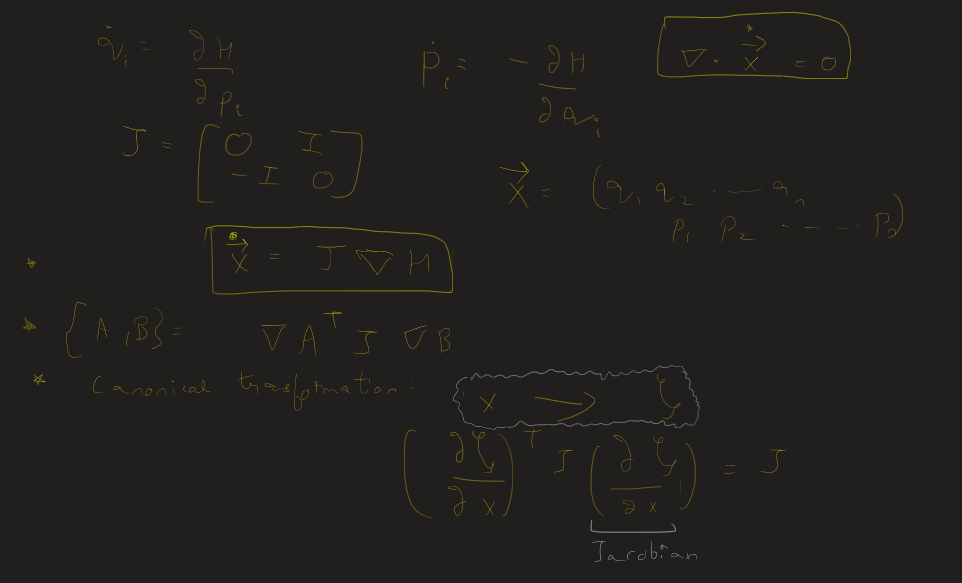 q̇ᵢ = ∂H/∂pᵢ    ṗᵢ = - ∂H/∂qᵢ    ∇ · ẋ⃗ = 0
J = [0 I; -I 0]
x⃗ = (q₁ q₂ ... qₙ
p₁ p₂ ... pₙ)
ẋ⃗ = J ∇ H
{A, B} = ∇Aᵀ J ∇B
Canonical trasformation: x → ζ
(∂ζ/∂x)ᵀ J (∂ζ/∂x) = J
Jacobian